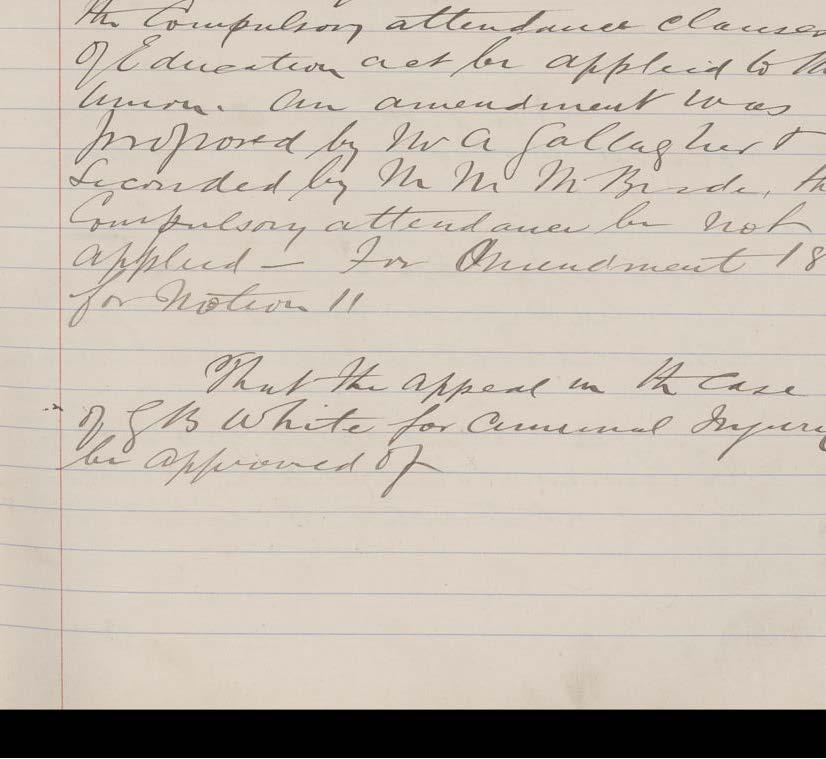 the Compulsory attendance clauses
of Education act be applied to th
Union. An amendment was
proposed by Mr A Gallagher &
Seconded by Mr M McBride, th
Compulsory attendance be not
applied — For Amendment 18
for Motion 11
That the appeal in the case
of G B White for Criminal Injury
be approved of